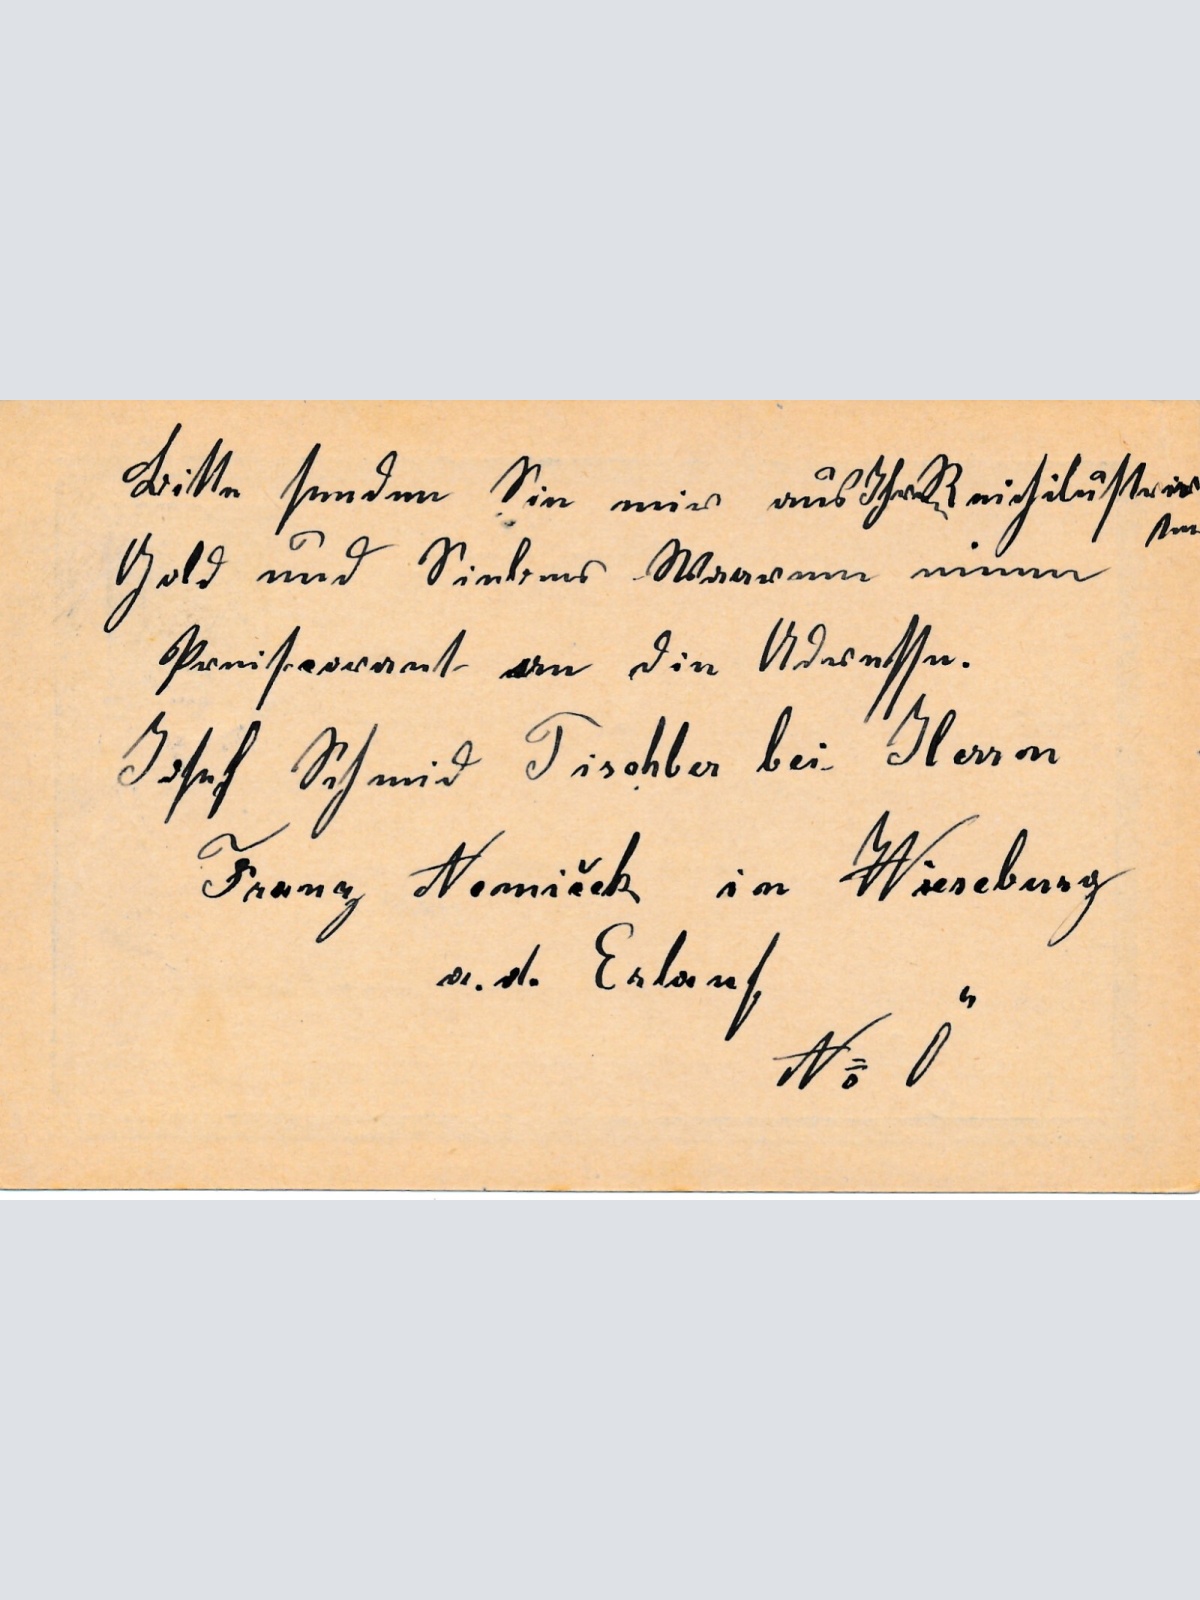 Bitte senden Sie mir aus Ihr Reichilustrir
ten
Gold und Sielber Waaren einen
Preiscorant an die Adresse.
Josef Schmid Tischler bei Herrn
Franz Nemiček in Wieseburg
a. d. Erlauf
No